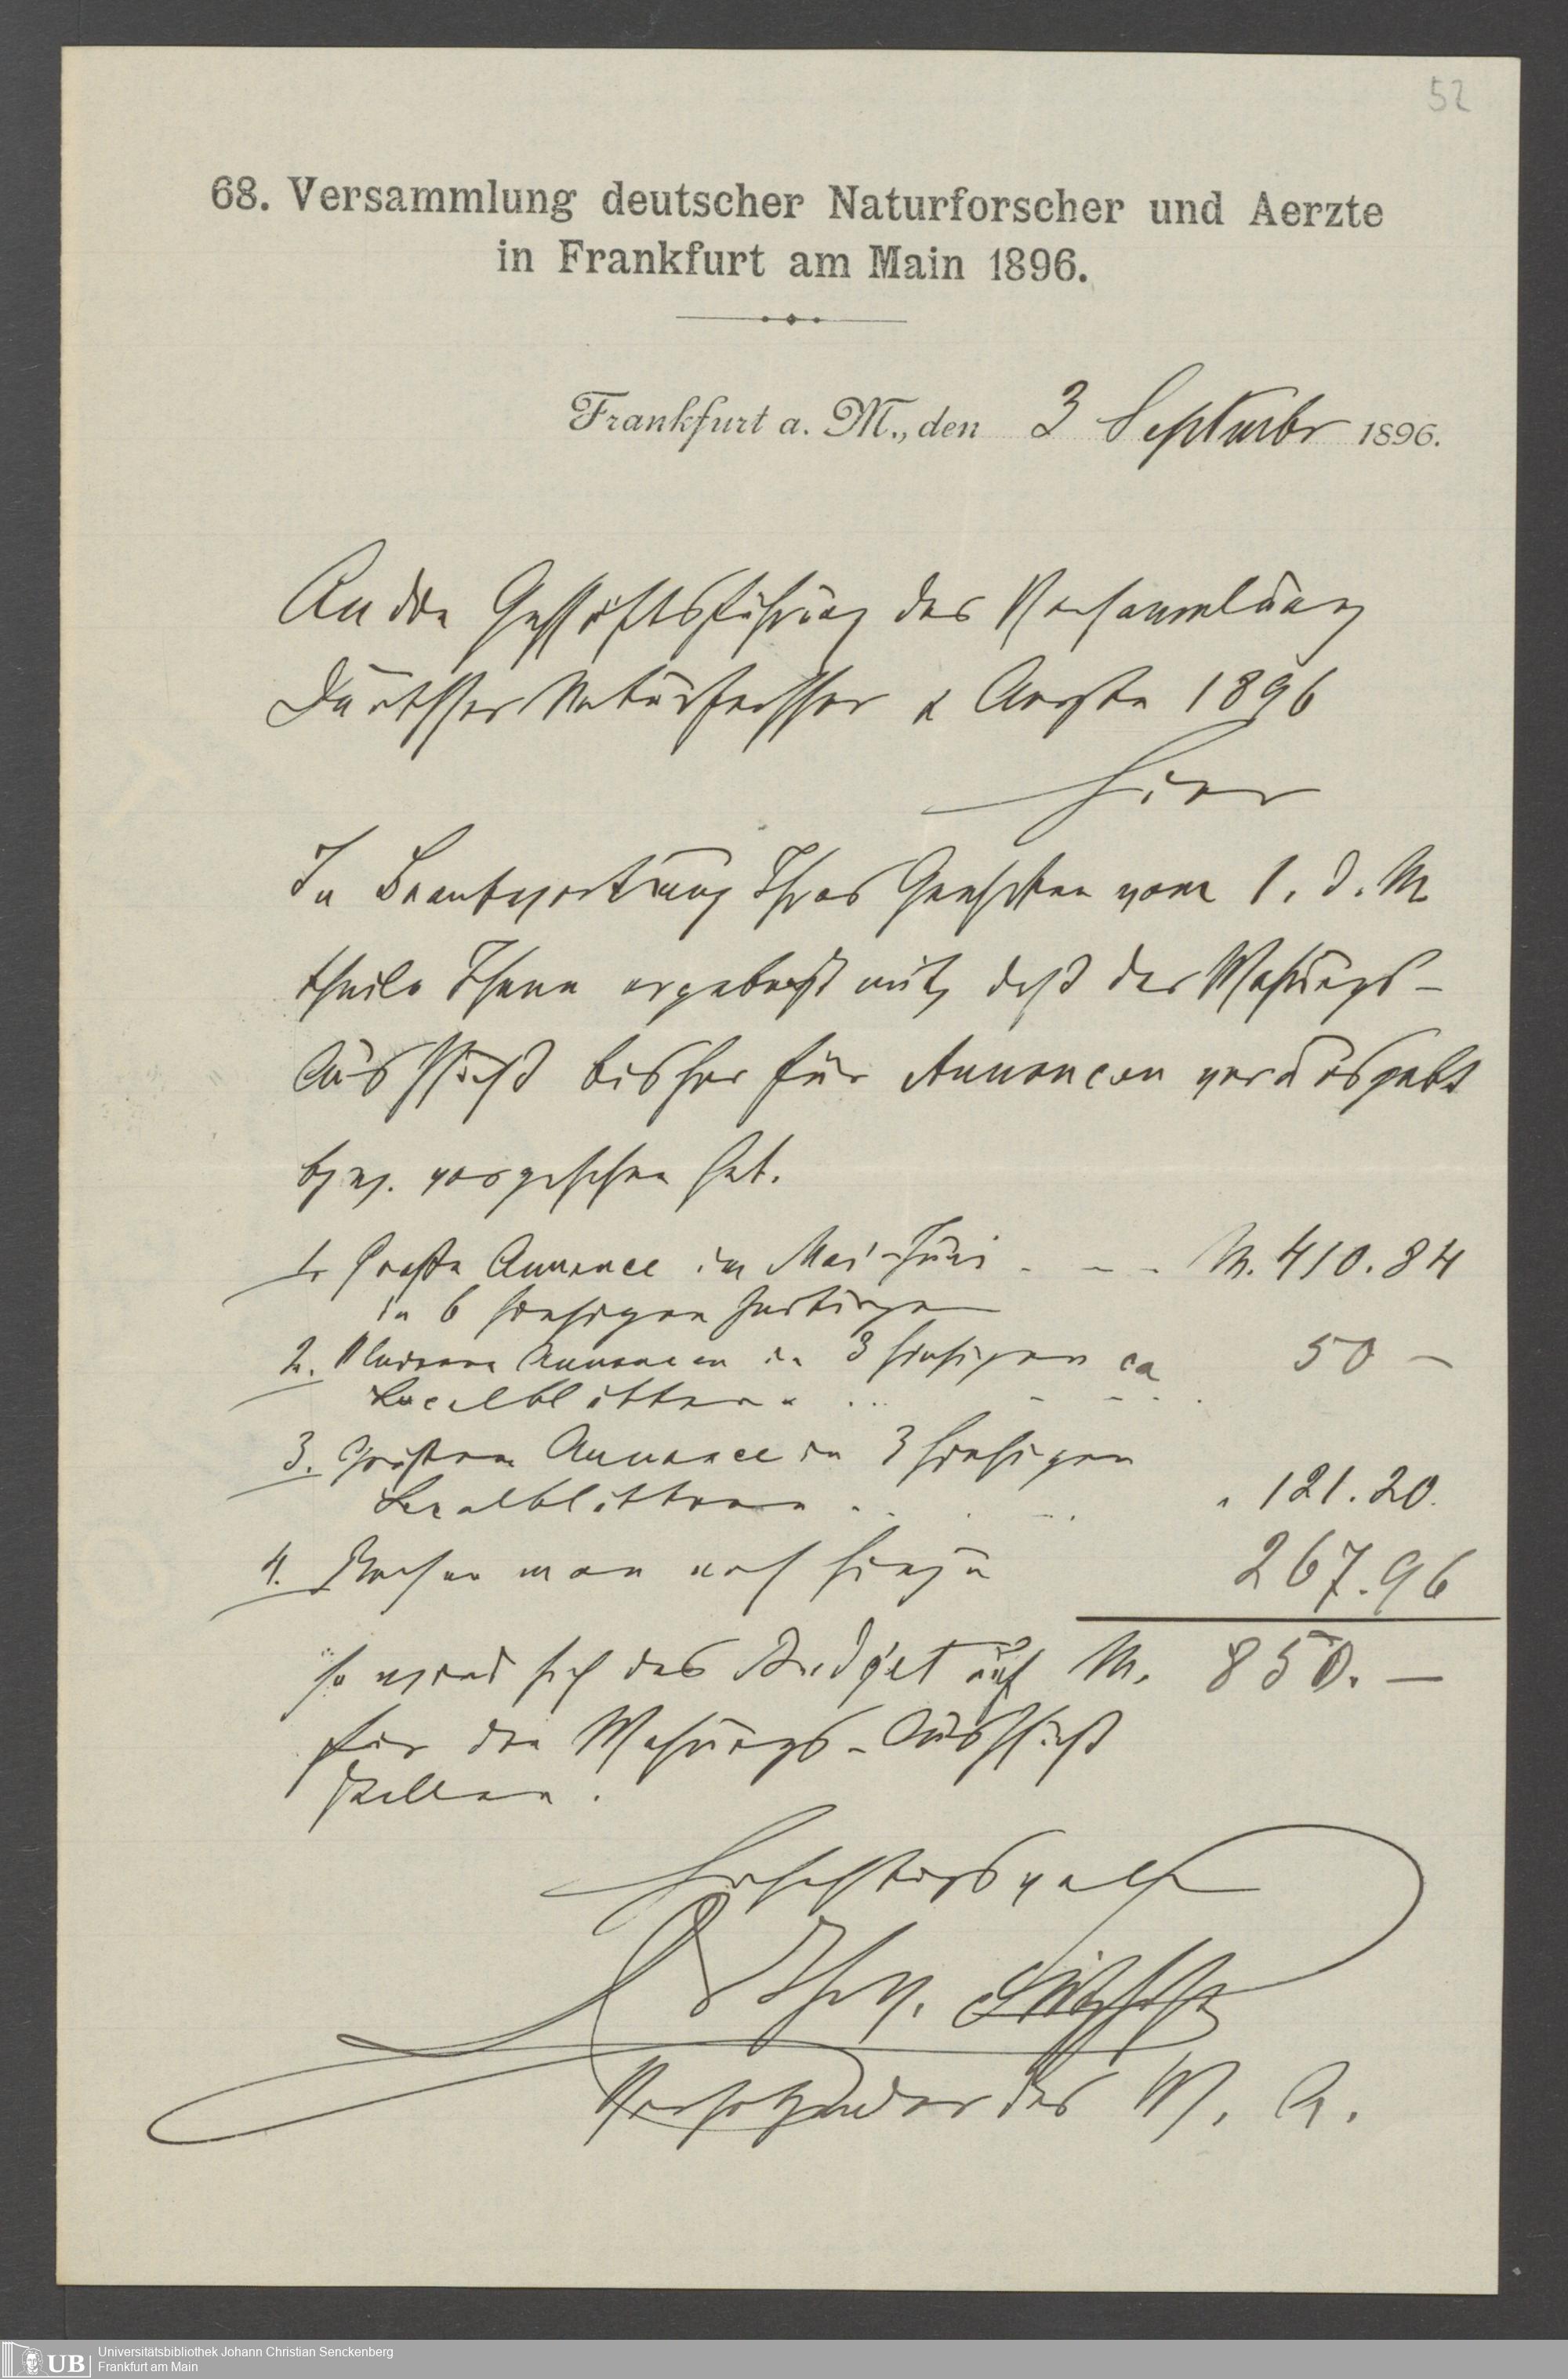 52
68. Versammlung deutscher Naturforscher und Aerzte
in Frankfurt am Main 1896.
Frankfurt a. M., den 3 September 1896.
An die Geschäftsführung der Versammlung
Deutscher Naturforscher & Aerzte 1896
Hier
In Beantwortung Ihres Geehrten vom 1. d. M
theile Ihnen ergebenst mit, daß der Wohnungs-
Ausschuß bisher für Annoncen verausgabt
bzw. vorgesehen hat.
1. Große Annonce im Mai-Juni - - - M. 410.84
in 6 hiesigen Zeitungen
2. Kleinere Annoncen in 3 hiesigen ca 50 -
Localblättern
3. Größere Annonce in 3 hiesigen
Localblättern " 121.20.
4. Rechnen wir noch hinzu 267.96
so wird sich das Budget auf M. 850. -
für den Wohnungs-Ausschuß
stellen.
Hochachtungsvoll
Vorsitzender des W. A.
UB Universitätsbibliothek Johann Christian Senckenberg
Frankfurt am Main